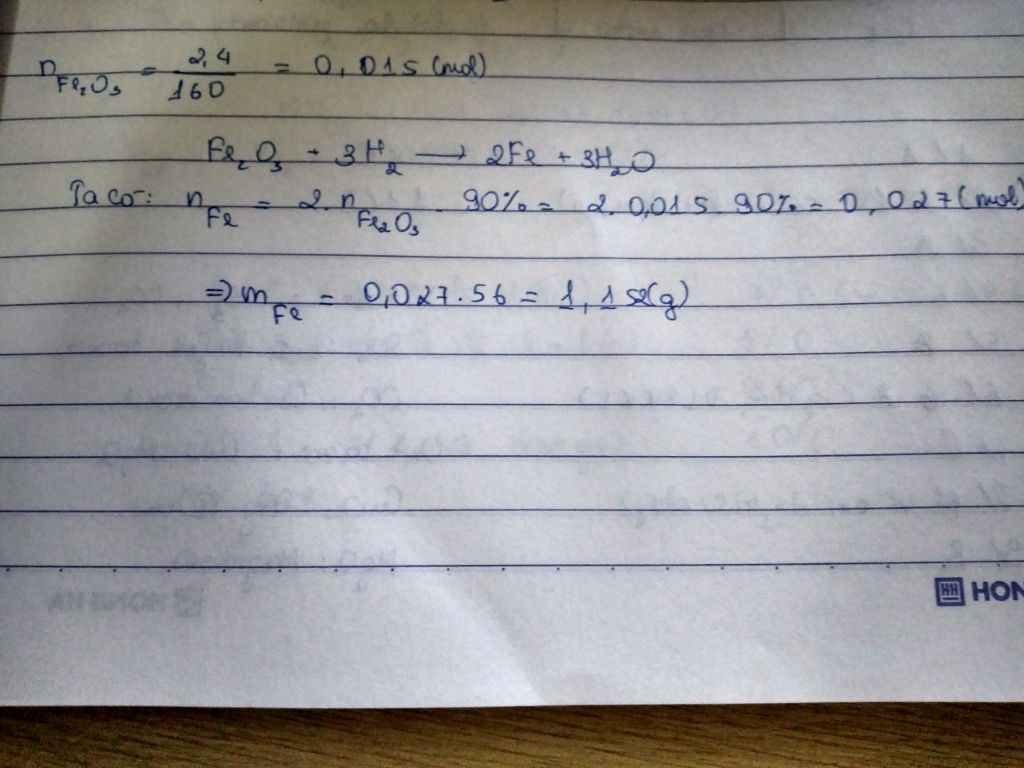 n Fe₂O₃ = 2,4/160 = 0,015 (mol)
Fe₂O₃ + 3H₂ → 2Fe + 3H₂O
Ta có: n Fe = 2. n Fe₂O₃ . 90% = 2. 0,015. 90% = 0,027 (mol)
⇒ m Fe = 0,027.56 = 1,152(g)
HON